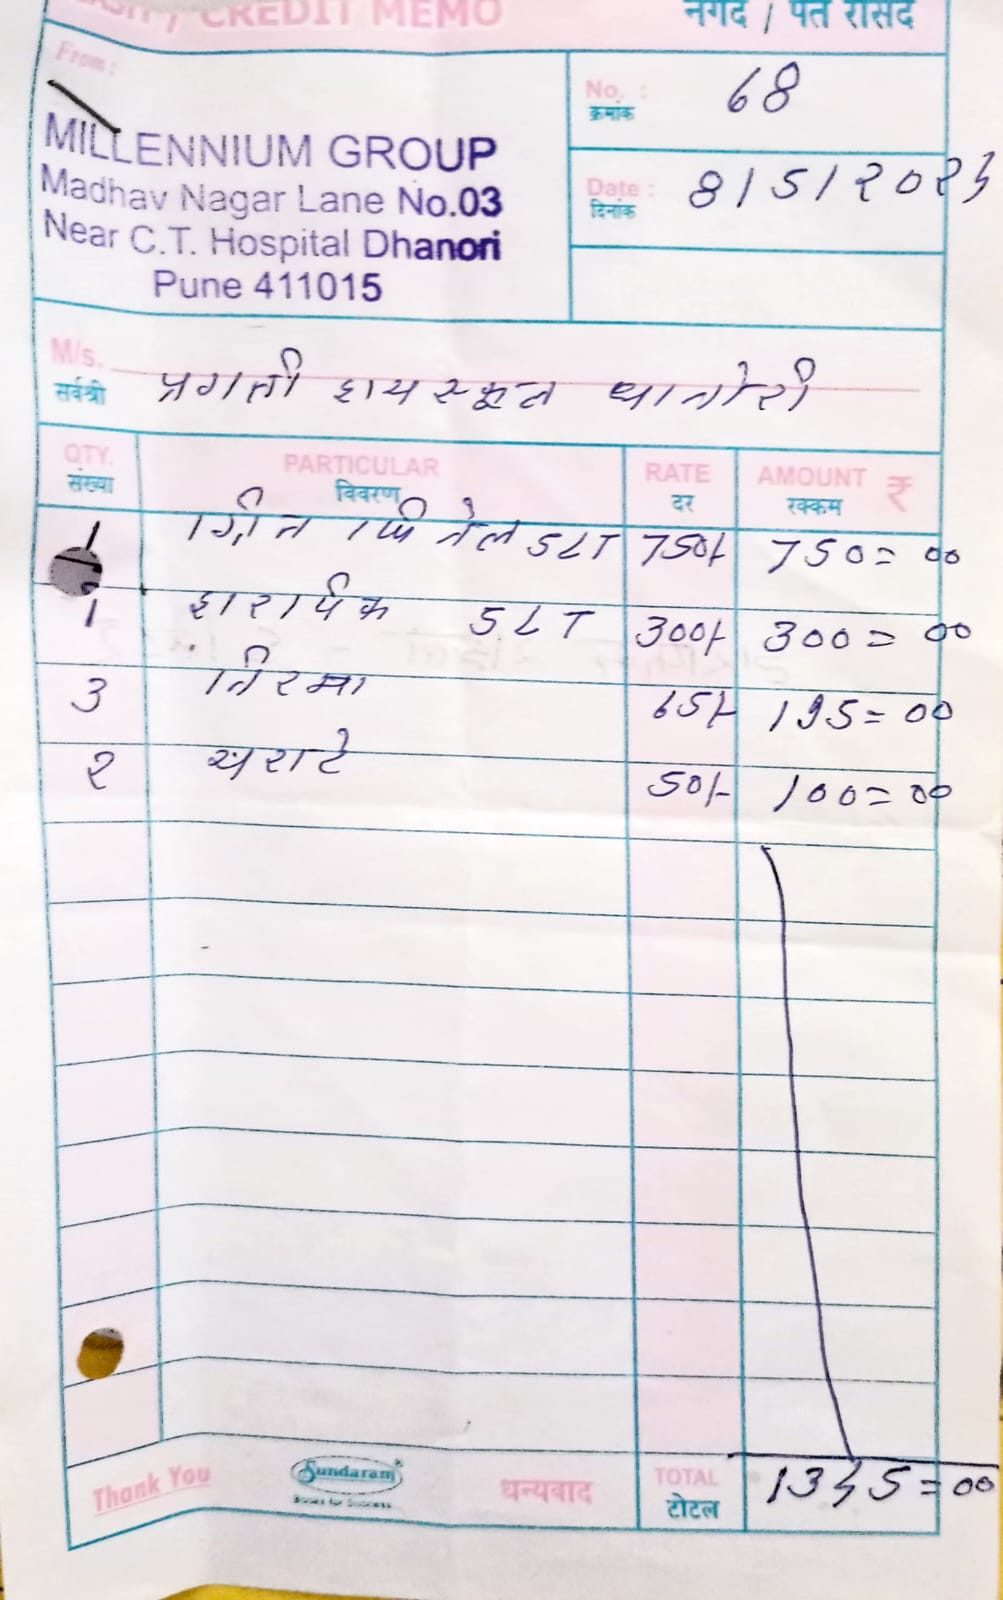 CREDIT MEMO
नगद / पत रसिद
From :
MILLENNIUM GROUP
Madhav Nagar Lane No.03
Near C.T. Hospital Dhanori
Pune 411015
No. : 68
क्रमांक
Date : 8/5/2023
दिनांक
M/s.
सर्वश्री प्रगती हायस्कूल धानोरी
QTY. PARTICULAR RATE AMOUNT ₹
संख्या विवरण दर रक्कम
1 ग्रीन फिनेल 5LT 750/- 750=00
1 हारपिक 5LT 300/- 300=00
3 निरमा 65/- 195=00
२ खराटे 50/- 100=00
Thank You Sundaram® धन्यवाद TOTAL 1345=00
Books for Success टोटल